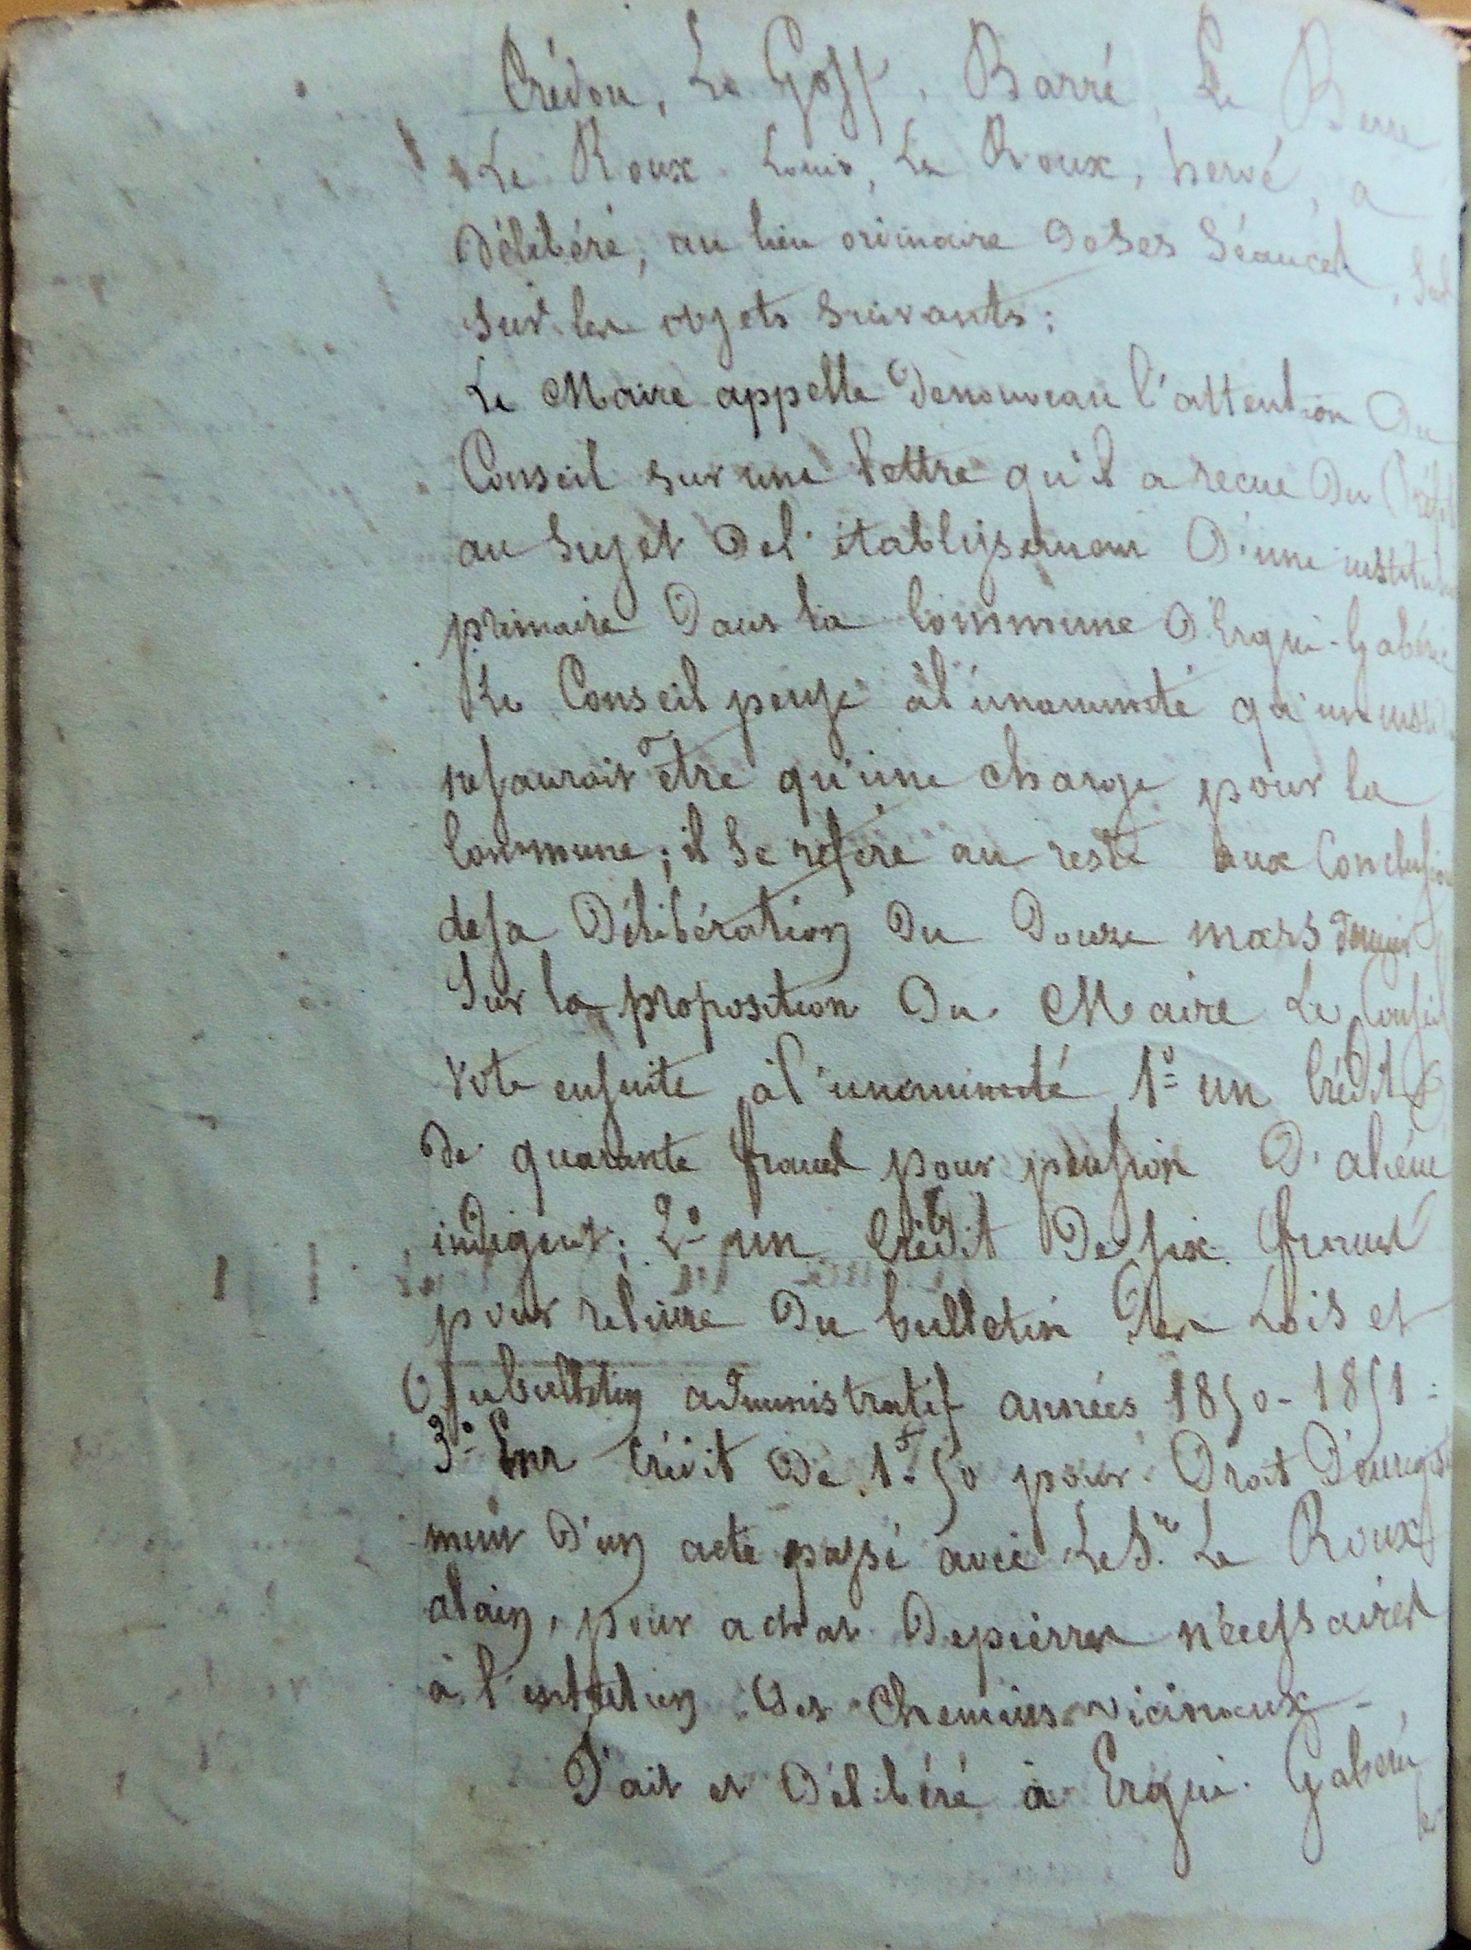 Crédou, Le Goff, Barré, Le Berre
Le Roux Louis, Le Roux, hervé, a
Délibéré, au lieu orinaire de ses Séances,
Sur les objets Suivants:
Le Maire appelle denouveau l'attention Du
Conseil sur une lettre qu'il a recue Du
au Sujet Del'établissement D'une
primaire Dans la Commune D'Ergué-Gabéric
Le Conseil pense àl'unanimité qu'un
nesaurait être qu'une charge pour la
Commune; il Se réfère au reste aux Conclusions
desa Délibération Du Douze mars dernier
Sur la proposition Du Maire Le Conseil
vote ensuite àl'unanimité 1º un Crédit
De quarante francs pour pension D'aliéné
indigent; 2º un Crédit De six francs
pour reliure Du bulletin Des Lois et
Dubulletin administratif années 1850-1851=
3º Un Crédit De 1f50 pour Droit D'enregistre
ment D'un acte passé avec Le Sr Le Roux
alain, pour achat Depierres nécessaires
à l'entretien Des Chemins vicinaux-
Fait et Délibéré à Ergué-Gabéric
le